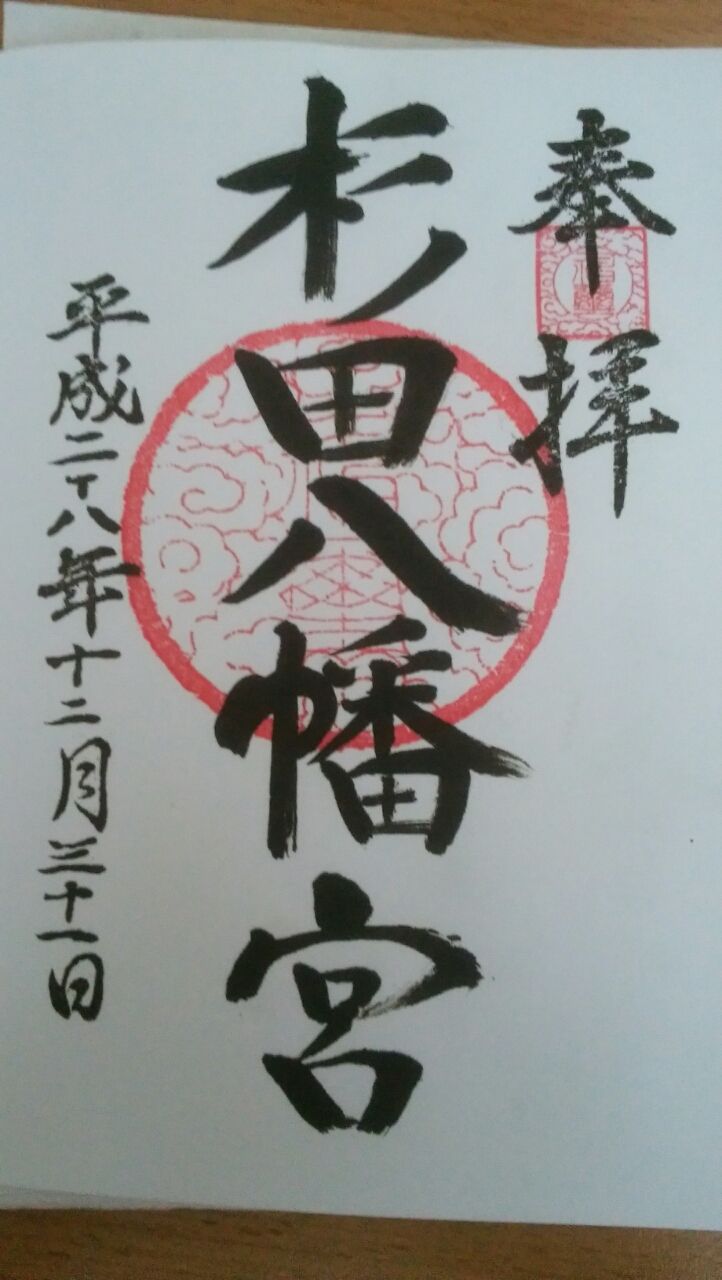 奉拝
杉田八幡宮
平成二十八年十二月三十一日